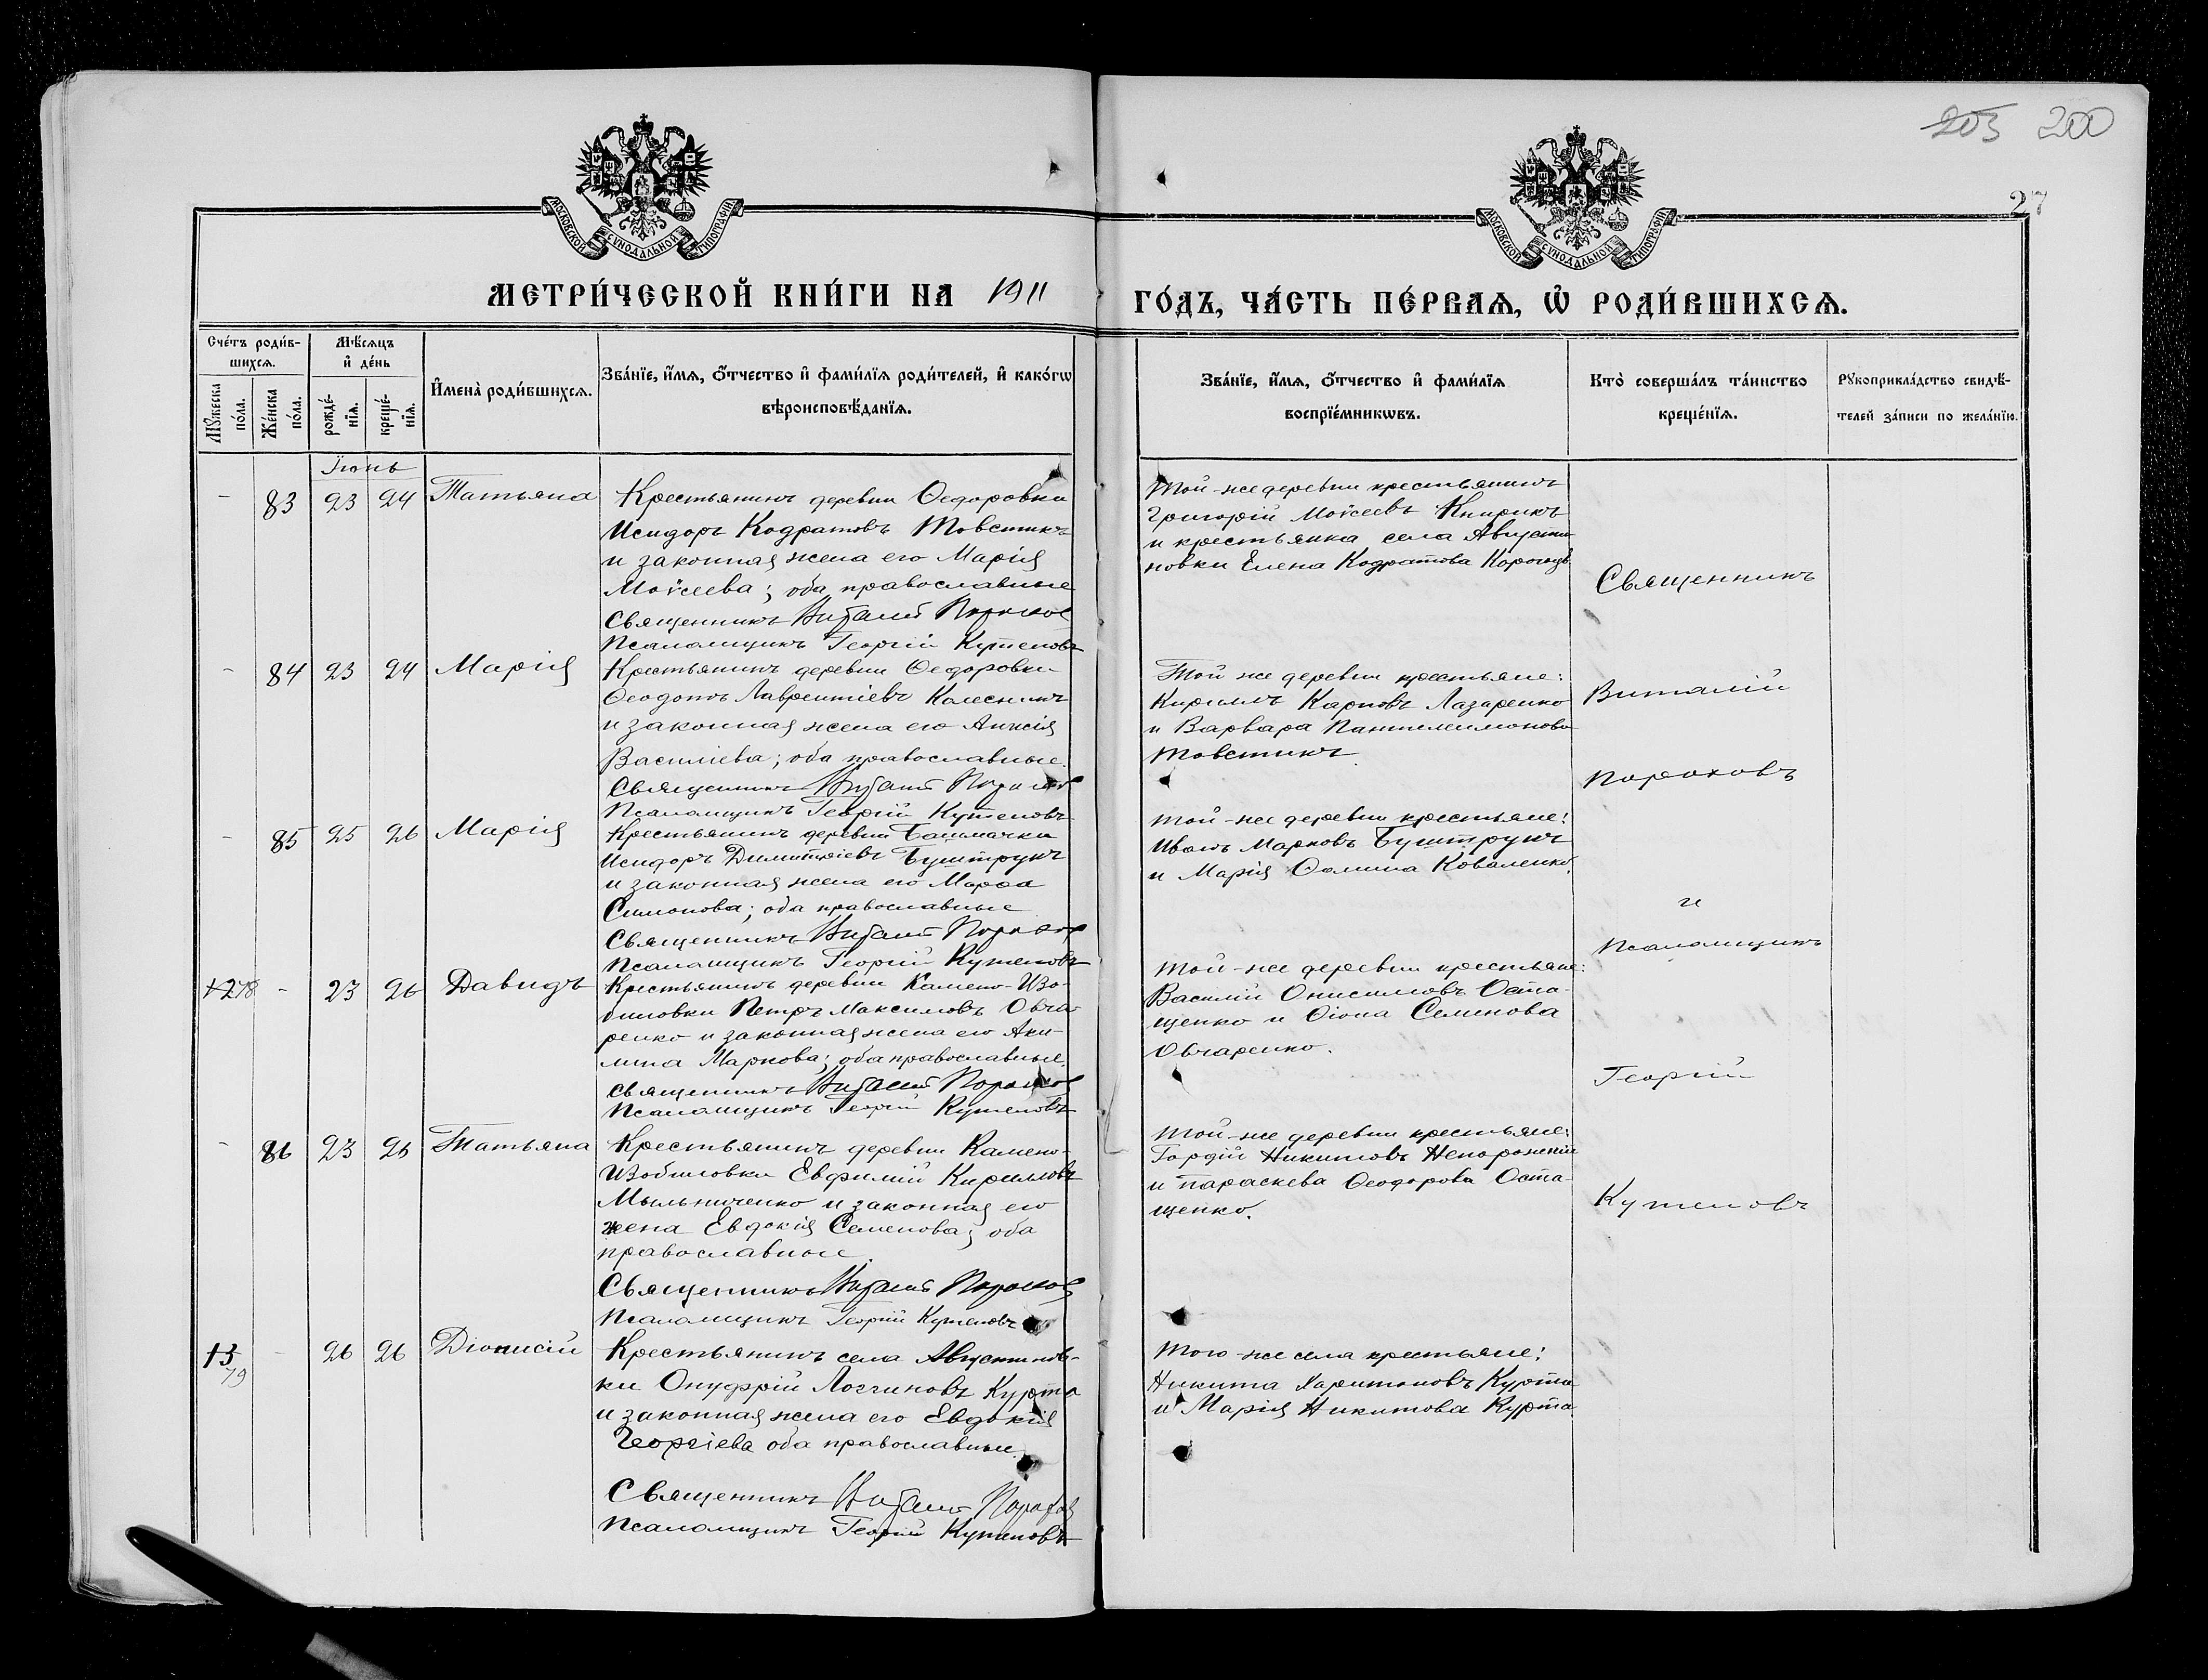 203 200
27
МОСКОВСКОЙ СѴНОДАЛЬНОЙ ТИПОГРАФІИ
МОСКОВСКОЙ СѴНОДАЛЬНОЙ ТИПОГРАФІИ
МЕТРИ́ЧЕСКОЙ КНИ́ГИ НА 1911 ГО́ДЪ, ЧА́СТЬ ПЕ́РВАѦ, Ѽ РОДИ́ВШИХСѦ.
Сче́тъ роди́в-
шихсѧ.
Мꙋ́жеска по́ла.
Же́нска по́ла.
Мѣ́сѧцъ
и҆ де́нь
рожде́-
нїѧ.
креще́-
нїѧ.
И҆мена̀ роди́вшихсѧ.
Зва́нїе, и҆́мѧ, ѻ҆́тчество и҆ фами́лїѧ роди́телей, и҆ како́гѡ
вѣроисповѣ́данїѧ.
Зва́нїе, и҆́мѧ, ѻ҆́тчество и҆ фами́лїѧ
воспрїе́мникѡвъ.
Кто̀ соверша́лъ та́инство
креще́нїѧ.
Рꙋкоприкла́дство свидѣ́-
телей за́писи по жела́нїю.
Іюнь
- 83 23 24 Татьяна
Крестьянинъ деревни Ѳедоровки
Исидоръ Кодратовъ Товстикъ
и законная жена его Марія
Моѵсеева; оба православные
Священникъ Виталій Пороховъ
Псаломщикъ Георгій Кутеповъ
Той-же деревни крестьянинъ
Григорій Моѵсеевъ Книрикъ
и крестьянка села Августи-
новки Елена Кодратова
Священникъ
- 84 23 24 Марія
Крестьянинъ деревни Ѳедоровки
Ѳеодотъ Лаврентіевъ Колесникъ
и законная жена его Анисія
Василіева; оба православные.
Священникъ Виталій Пороховъ
Псаломщикъ Георгій Кутеповъ
Той же деревни крестьяне:
Кириллъ Карповъ Лазаренко
и Варвара Пантелимонова
Товстикъ.
Виталій
Пороховъ
- 85 25 26 Марія
Крестьянинъ деревни Башмачки
Исидоръ Димитріевъ Буштрукъ
и законная жена его Марѳа
Симонова; оба православные
Священникъ Виталій Пороховъ
Псаломщикъ Георгій Кутеповъ
Той-же деревни крестьяне:
Иванъ Марковъ Буштрукъ
и Марія Ѳомина Коваленко.
и
Псаломщикъ
78 - 23 26 Давидъ
Крестьянинъ деревни Камено-Изо-
биловки Петръ Максимовъ Овча-
ренко и законная жена его Аки-
лина Маркова; оба православные.
Священникъ Виталій Пороховъ
Псаломщикъ Георгій Кутеповъ
Той-же деревни крестьяне:
Василій Онисимовъ Оста-
щенко и Ѳіона Семенова
Овчаренко.
Георгій
- 86 23 26 Татьяна
Крестьянинъ деревни Камено-
Изобиловки Евфимій Кирилловъ
Мыльниченко и законная его
жена Евдокія Семенова; оба
православные.
Священникъ Виталій Пороховъ
Псаломщикъ Георгій Кутеповъ
Той-же деревни крестьяне:
Гордій Никитовъ Непорожній
и Параскева Ѳеодорова Оста-
щенко.
Кутеповъ
79 - 26 26 Діонисій
Крестьянинъ села Августинов-
ки Онуфрій Логгиновъ Курта
и законная жена его Евдокія
Георгіева оба православные.
Священникъ Виталій Пороховъ
Псаломщикъ Георгій Кутеповъ
Того-же села крестьяне:
Никита Харитоновъ Курта
и Марія Никитова Курта